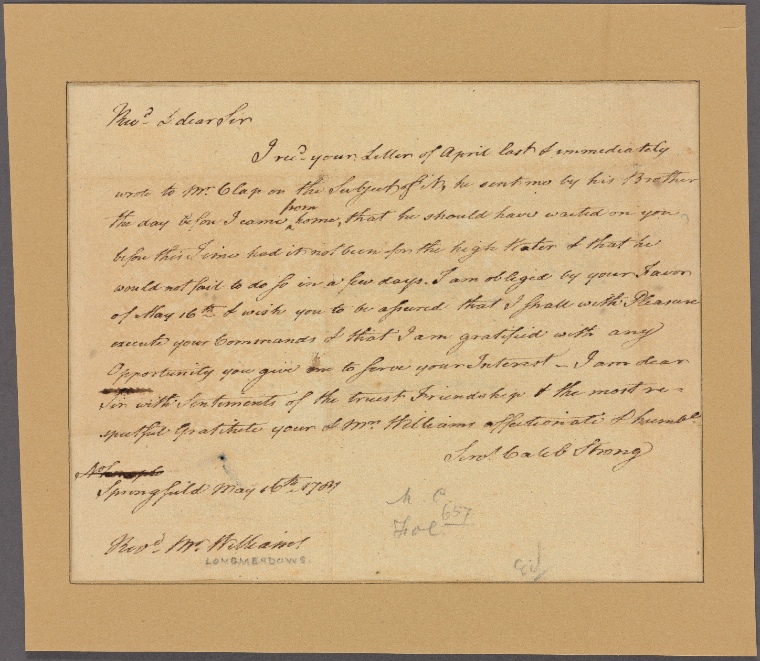 Rev.d & dear Sir
I rec.d your Letter of April last & immediately
wrote to Mr. Clap on the Subject of it, he sent me by his Brother
the day before I came from home, that he should have waited on you
before this Time had it not been for the high Water & that he
would not fail to do so in a few days. I am obliged by your Favor
of May 16th & wish you to be assured that I shall with Pleasure
execute your Commands & that I am gratified with any
Opportunity you give me to serve your Interest – I am dear
Sir with Sentiments of the truest Friendship & the most re-
spectful Gratitude your & Mrs. Williams affectionate & humble
Serv.t Caleb Strong
Springfield May 16th
Rev.d Mr. Williams
LONGMEADOWS.
M. C.
657